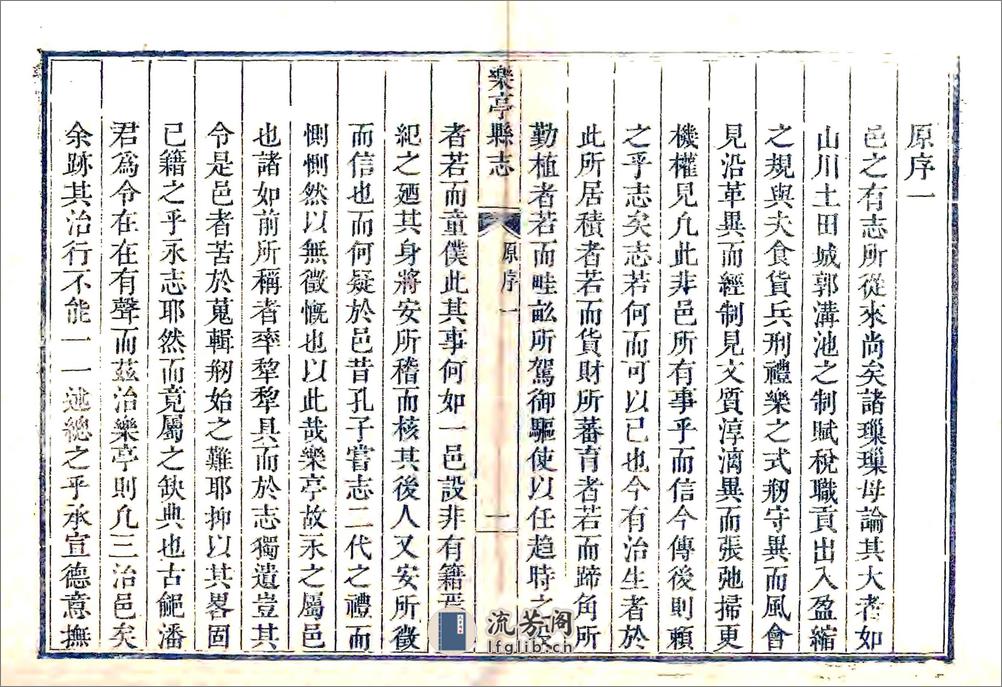 原序一
邑之有志所從來尚矣諸璅璅毋論其大者如
山川土田城郭溝池之制賦稅職貢出入盈縮
之規與夫食貨兵刑禮樂之式刱守異而風會
見沿革異而經制見文質淳漓異而張弛掃更
機權見凢此非邑所有事乎而信今傳後則賴
之乎志矣志若何而可以已也今有治生者於
此所居積者若而貨財所蕃育者若而蹄角所
勤植者若而畦畝所駕御驅使以任趨時之役
樂亭縣志
原序
一
一
者若而童僕此其事何如一邑設非有籍焉
紀之廼其身將安所稽而核其後人又安所徵
而信也而何疑於邑昔孔子嘗志二代之禮而
惻惻然以無徵慨也以此哉樂亭故永之屬邑
也諸如前所稱者率犂犂具而於志獨遺豈其
令是邑者苦於蒐輯刱始之難耶抑以其畧固
已籍之乎永志耶然而竟屬之缺典也古䣊潘
君爲令在在有聲而茲治樂亭則凢三治邑矣
余跡其治行不能一一述總之乎承宣德意撫
流芳阁
lfglib.cn